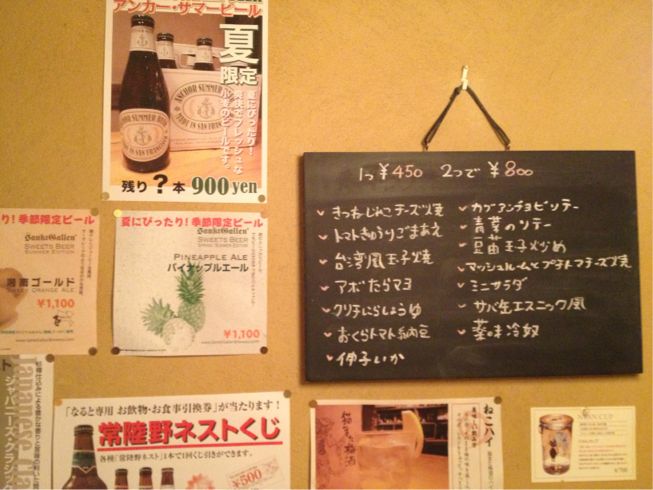 アンカー・サマービール
夏
限定
夏にぴったり！
爽快でフレッシュな
小麦のビールです。
ANCHOR SUMMER BEER
残り ? 本 900 yen
り! 季節限定ビール
Sankt Gallen
SWEETS BEER
SUMMER EDITION
湘南ゴールド
¥1,100
夏にぴったり! 季節限定ビール
Sankt Gallen
SWEETS BEER
PINEAPPLE ALE
パイナップルエール
¥1,100
1つ ¥450 2つで ¥800
きつねじねこチーズ焼
トマトきゅうりごまあえ
台湾風玉子焼
アボたらマヨ
クリチにらしょうゆ
おくらトマト納豆
仲子いか
カブアンチョビソテー
青菜のソテー
豆苗玉子炒め
マッシュルームとプチトマトチーズ焼
ミニサラダ
サバ缶エスニック風
薬味冷奴
ジャパニーズ・クラシック
「なると専用 お飲物・お食事引換券」が当たります!
常陸野ネストくじ
各種「常陸野ネスト」1本で1回くじ引きができます。
¥500
梅酒
ねこハイ